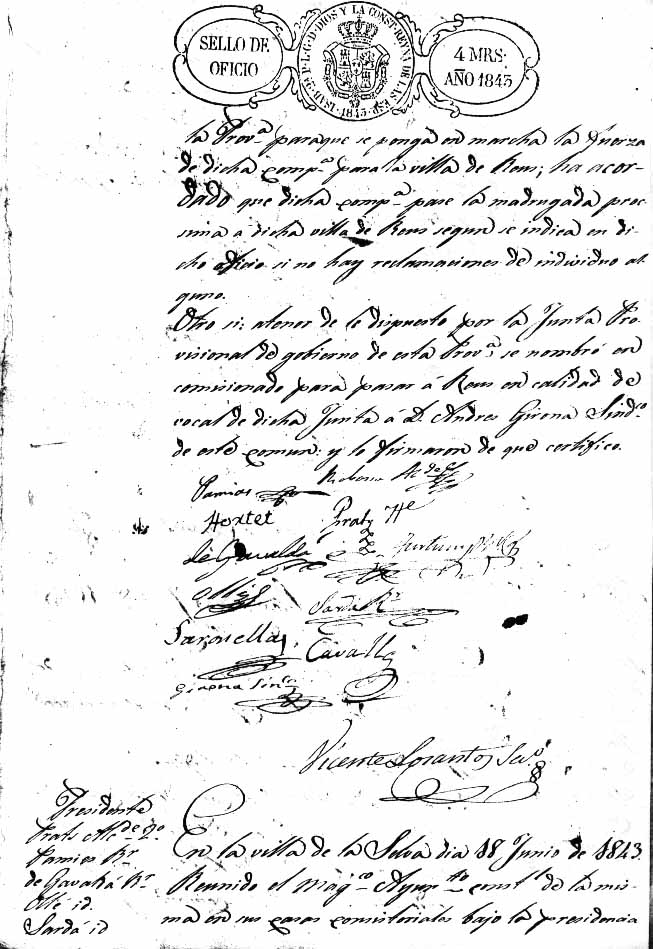 SELLO DE
OFICIO
ISAB. 2ª P. L. G. D. DIOS Y LA CONST. REYNA DE LAS ESP. 1843.
4 MRS:
AÑO 1843
la Prov.ª paraque se ponga en marcha la fuerza
de dicha comp.ª para la villa de Reus; ha acor-
dado que dicha comp.ª pase la madrugada proc-
sima á dicha villa de Reus segun se indica en di
cho oficio si no hay reclamaciones de individuo al
guno.
Otro si: atenor de lo dispuesto por la Junta Pro-
visional de gobierno de esta Prov.ª se nombró en
comisionado para pasar á Reus en calidad de
vocal de dicha Junta á D. Andres Girona Sind.co
de este comun: y lo firmaron de que certifico.
Pamies
Hortet
Prats
de Gavaldá
Ollé
Sardá R.r
Saronellas
Cavallé
Girona Sínc.
Vicente Loranto, Sec.º
Presidente
Prats Alc.de 2.º
Pamies R.r
de Gavaldá R.r
Ollé id.
Sardá id
En la villa de la Selva dia 18 Junio de 1843.
Reunido el Mag.co Ayun.to const.l de la mis-
ma en sus casas consistoriales bajo la presidencia